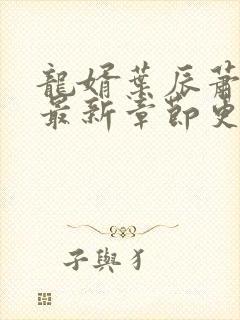 龍婿葉辰蕭
最新章節更
子與犭